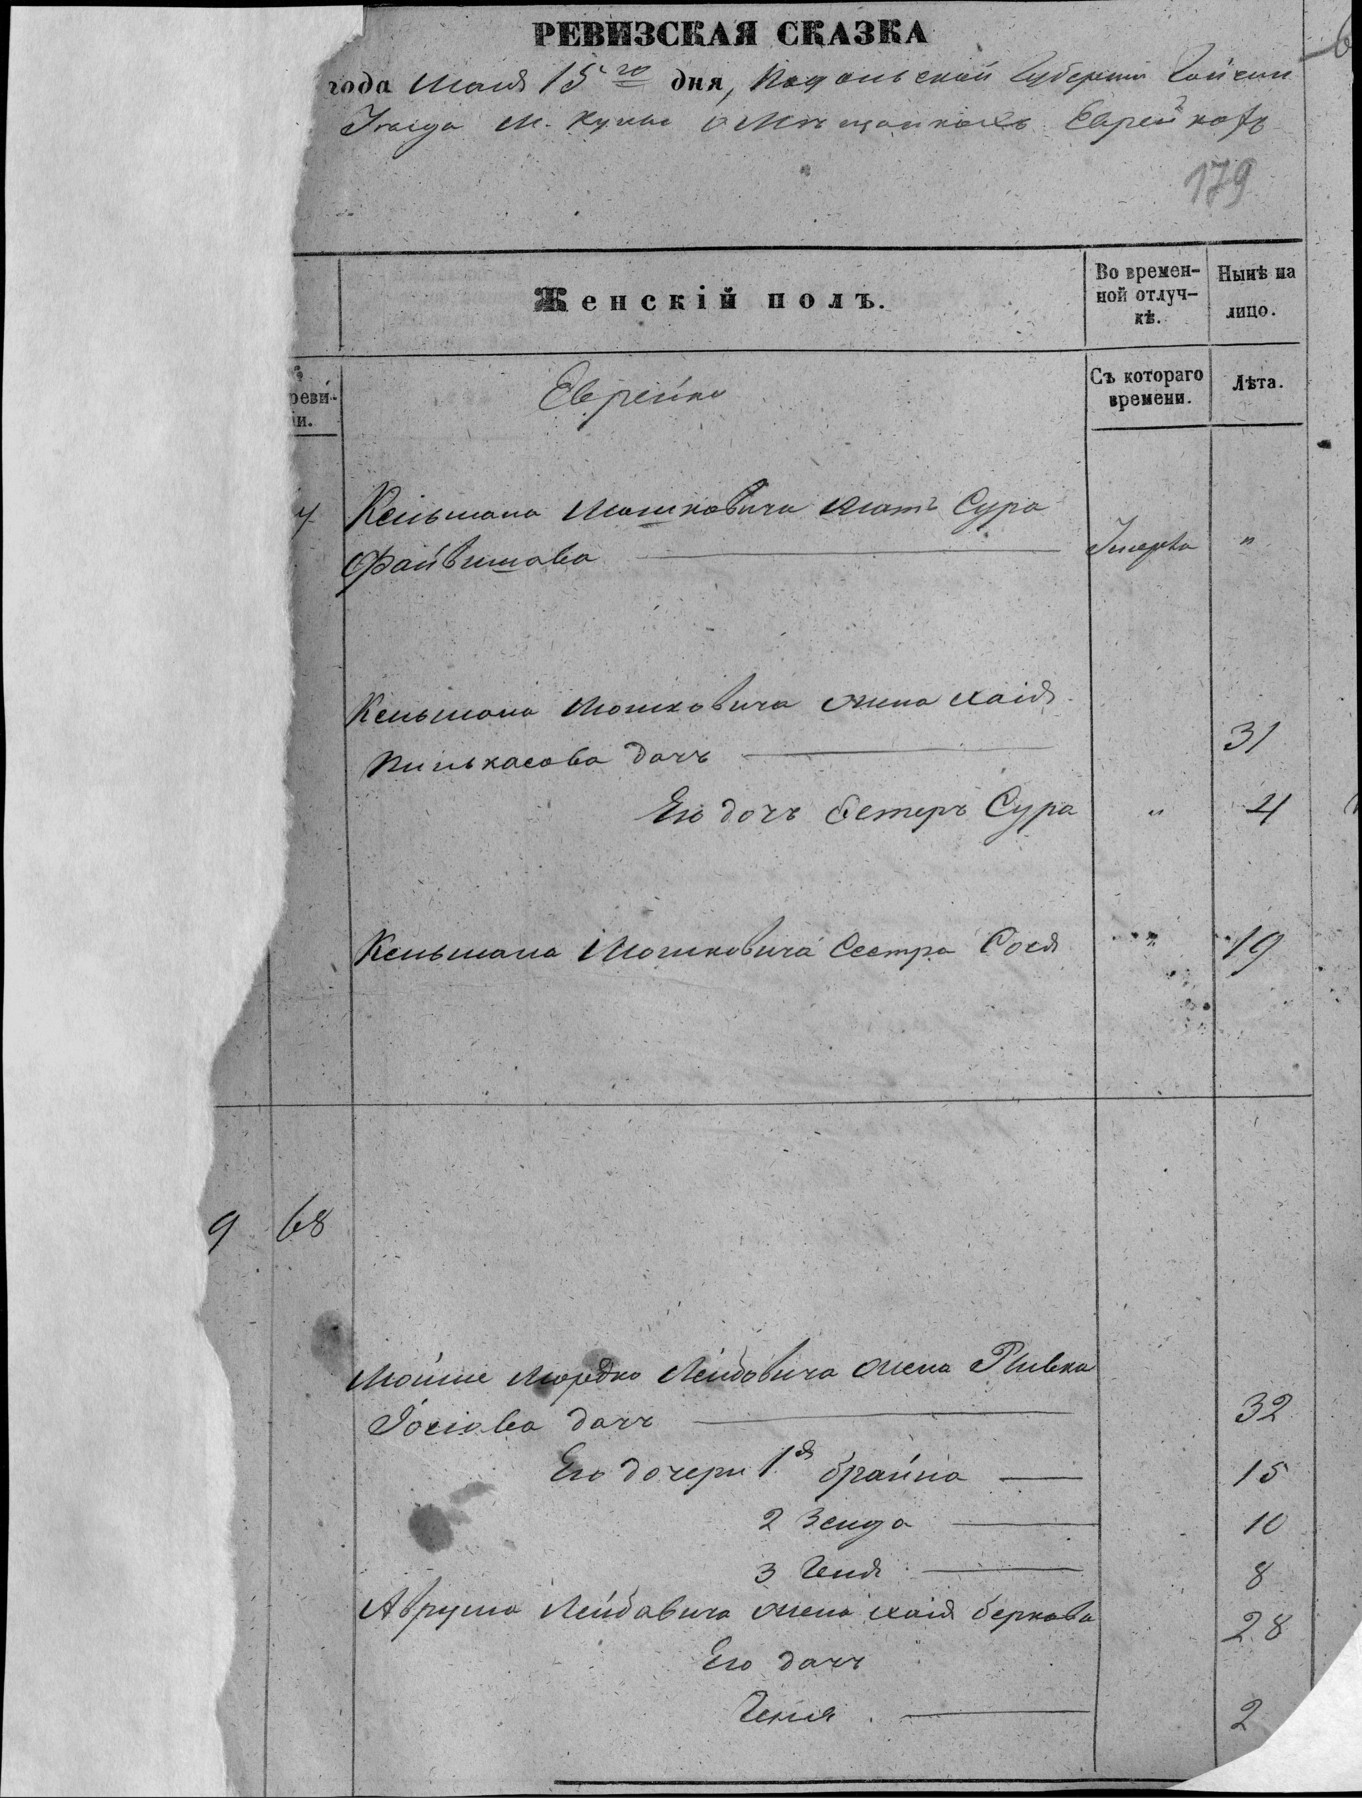 РЕВИЗСКАЯ СКАЗКА
года Маія 15го дня, Подольской Губерніи Гайсин
Уезда М. Куны о Мѣщанкахъ Еврейкахъ
179
Женскій полъ.
Во времен-
ной отлуч-
кѣ.
Нынѣ на
лицо.
реви-
іи.
Еврейки
Съ котораго
времени.
Лѣта.
Кельмана Мошковича мать Сура
Файвишова умерла "
Кельмана Мошковича жена Хаія
Пинькасова дочь 31
Его дочь Естеръ Сура " 4
Кельмана Мошковича сестра Сося " 19
9 68
Мойше Мордко Лейбовича жена Ривка
Іосіова дочь 32
Его дочери 1я Брайна 15
2 Зенда 10
3 Геня 8
Аврума Лейбовича жена Хаія Беркова 28
Его дочь
Геня 2